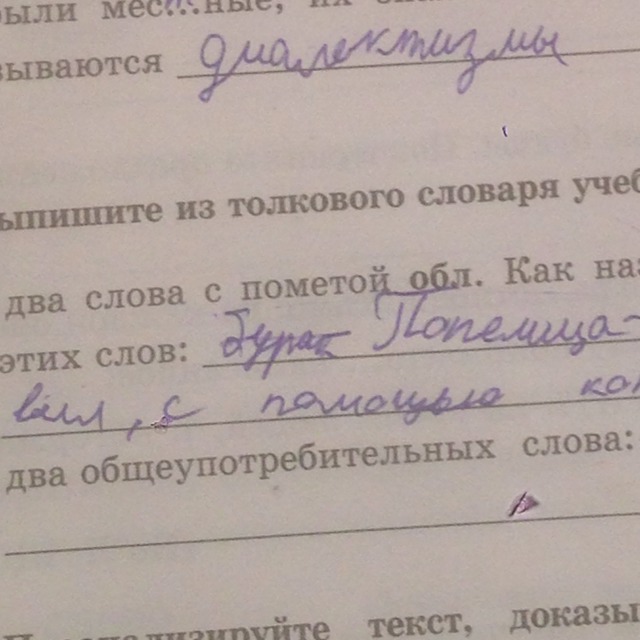 были мес...ные, их
зываются диалектизмы
ыпишите из толкового словаря учеб
два слова с пометой обл. Как наз
этих слов: Бурак Попелица-
вал, с помощью ко
два общеупотребительных слова:
текст, доказы